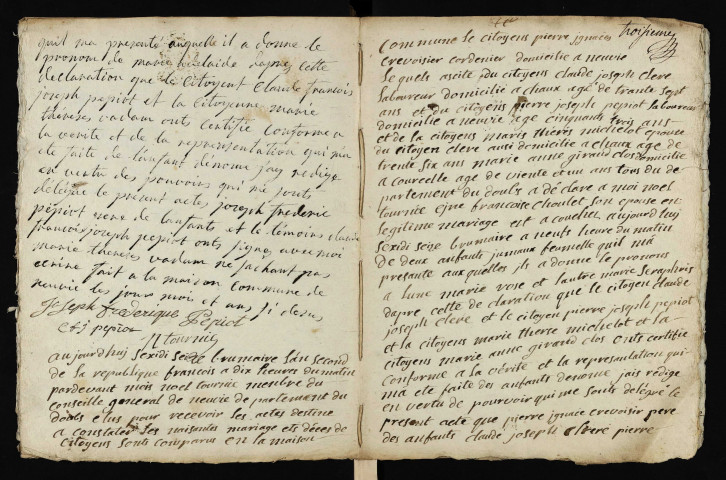 quil ma presenté auquelle il a donne le
pronom de marie adelaide dapres cette
declaration que le Citoyent Claude francois
joseph pepiot et la Citoyenne marie
thereses vadam onts certifie conforme a
la verite et de la representation qui ma
ete faite de lanfant dénome jay redige
en vertu des pouvoirs qui ne sonts
délégue le present actes joseph frederic
pepiot pere de lanfants et le témoins claude
francois joseph pepiot onts signe avec moi
marie thereses vadam ne sachant pas
ecrire fait a la maison commune de
neuvie les jour mois et ans si desus
Joseph frederique Pepiot
c f j pepiot
N tournie
aujourdhuj sexidi seize brumaire lan second
de la republique francois a dix heures du matin
pardevant mois noel tournie menbre du
conseille general de neuvie departemant du
doubs elus pour recevoir les actes destine
a constater les naisantes mariage ets déces de
Citoyens sonts comparus en la maison
troisiemes
commune le citoyens pierre ignaces
crevoisier cordonier domicilie a neuvie
le quels ascite du citoyens claude joseph clere
laboureur domicilie a chaux agé de trante sept
ans et du citoyens pierre joseph pepiot laboureur
domicilie a neuvie age cinquante trois ans
et de la citoyens marie theres michelot epouse
du citoyen clere ausi domicilie a chaux age de
trente six ans marie anne girard clos domicilie
a courcelle age de viente et un ans tous du de
partement du doubs a dé clare a moi noel
tournie que francoise choulet son epouse en
legitime mariage est a couchee aujourd huj
sexidi seize brumaire a neufs heure du matin
de deux anfants jumaux femelle quil ma
presante aux quelles jls a donne le pronons
a lune marie rose et lautre marie seraphins
dapre cette de claration que le citoyen claude
joseph clere et le citoyen pierre joseph pepiot
et la citoyens marie therse michelot et la
citoyens marie anne girard clos onts certifie
conforme a la vérité et la represantation qui
ma eté faite des anfants denome jais rédige
en vertu de pourvoir qui me sonts délégué le
present acte que pierre ignace crevoisier pere
des anfants claude joseph clere pierre